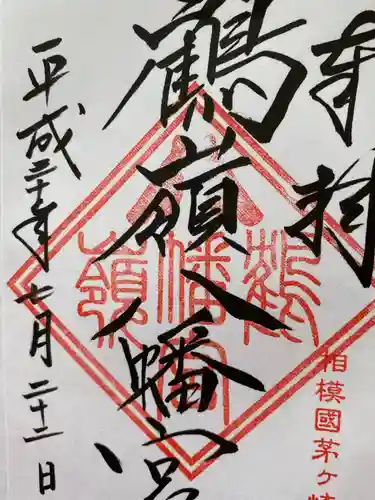 奉拝
鶴嶺八幡宮
鶴嶺八幡宮
相模國茅ヶ崎
平成三十年七月二十二日